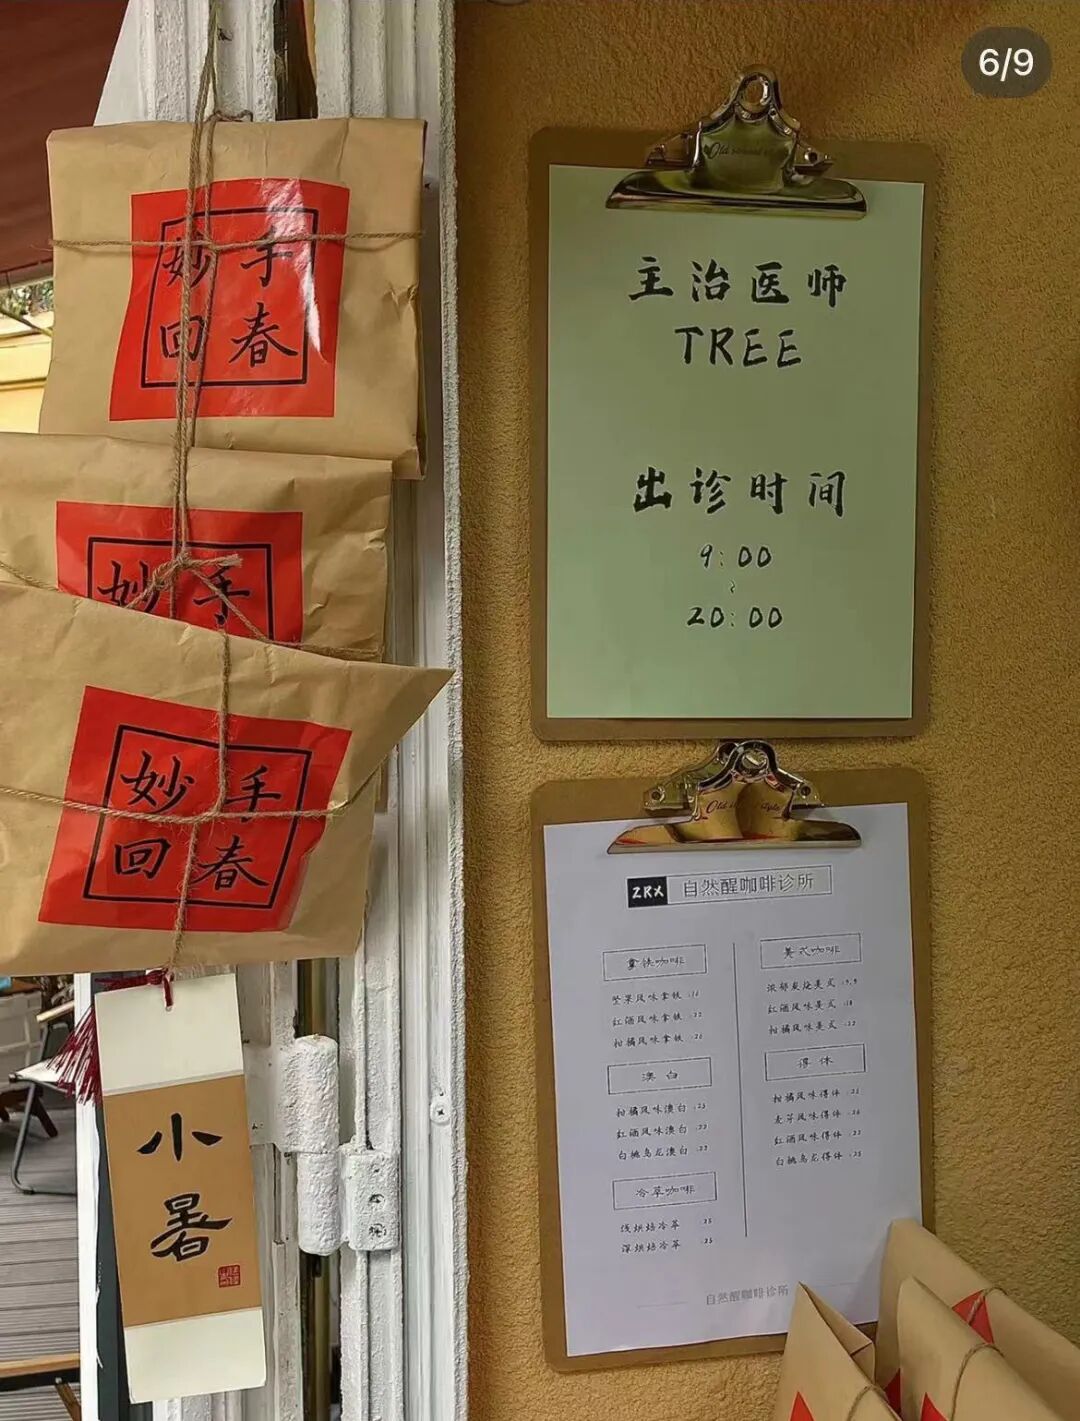 6/9
妙手
回春
妙手
妙手
回春
小暑
主治医师
TREE
出诊时间
9:00
~
20:00
ZRX 自然醒咖啡诊所
拿铁咖啡
坚果风味拿铁
红酒风味拿铁 :22
柑橘风味拿铁 :26
澳白
柑橘风味澳白 :25
红酒风味澳白 :22
白桃乌龙澳白 :22
冷萃咖啡
浅烘焙冷萃 :25
深烘焙冷萃 :25
美式咖啡
浓郁炭烧美式 :9.9
红酒风味美式 :18
柑橘风味美式 :22
得体
柑橘风味得体
麦芽风味得体
红酒风味得体 :22
白桃乌龙得体 :25
自然醒咖啡诊所